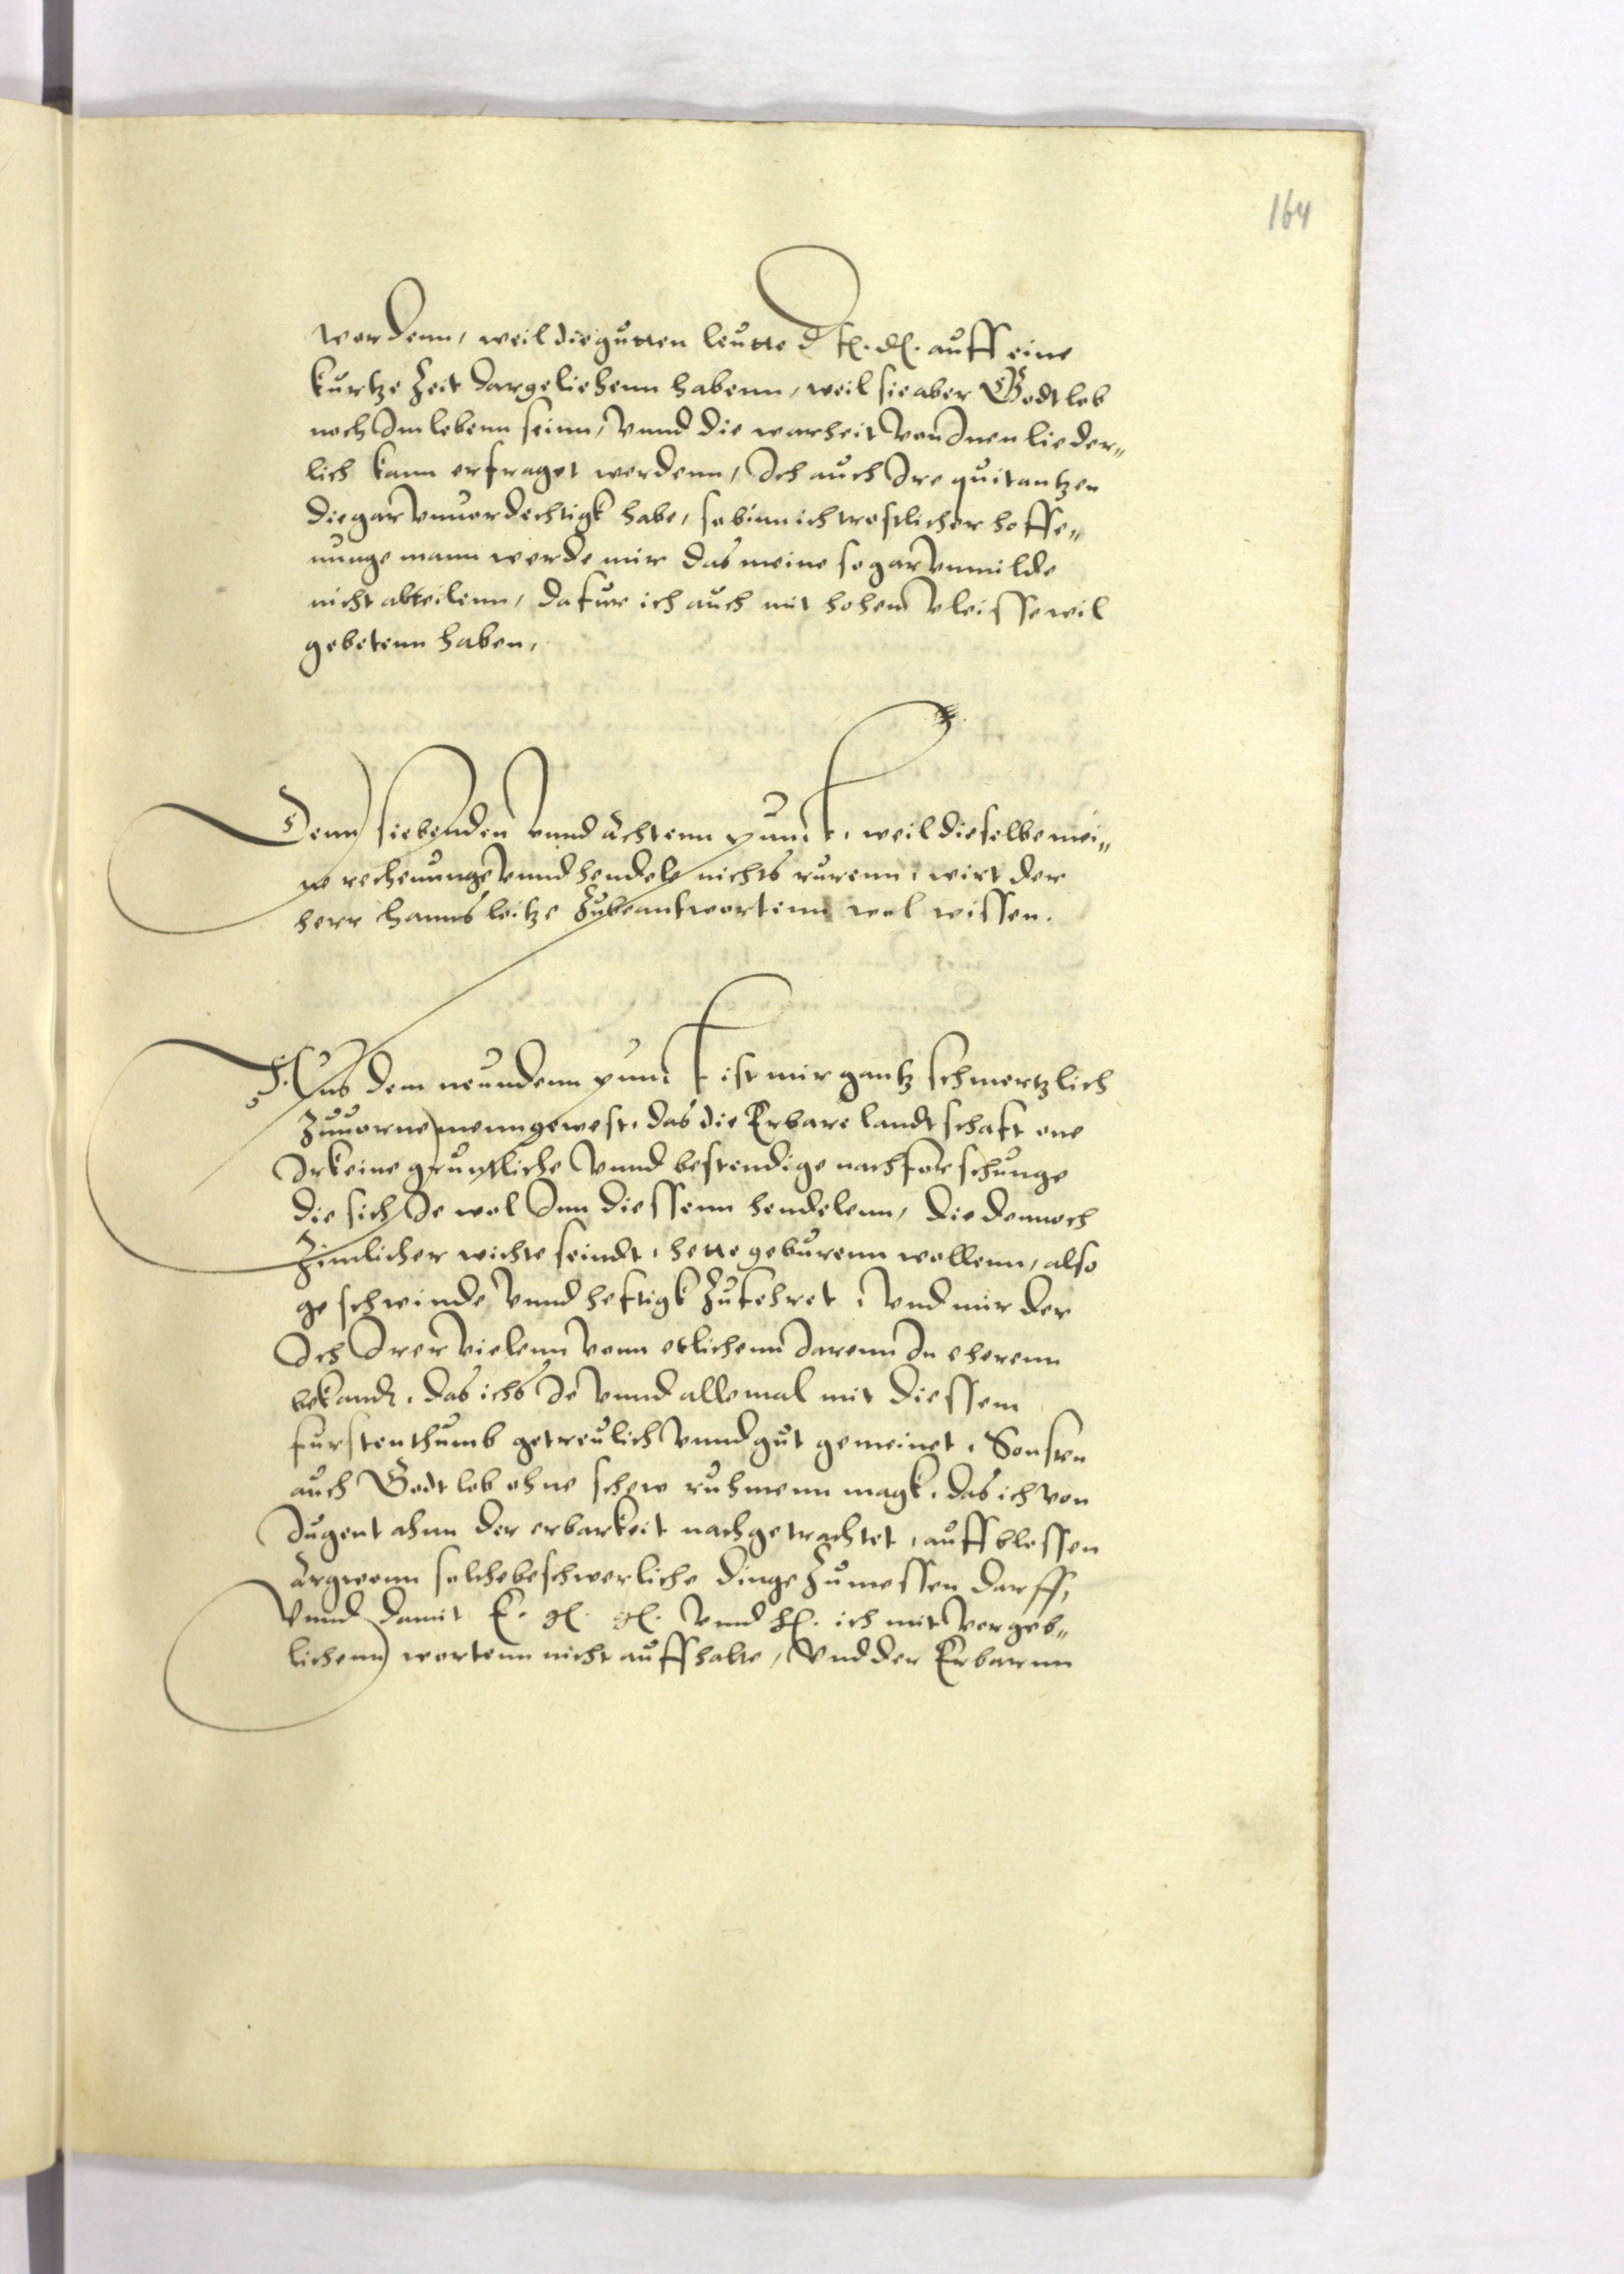 164
werdenn, weil die gutten leutte d f. d. auff eine
kurtze Zeit dargeliehenn habenn, weil sie aber Godt lob
noch Im lebenn seinn, vnnd die warheit von Inen lieder„
lich kann erfraget werdenn, Ich auch Ire quitantzen
die gar vnuordechtigk habe, so binn ich trostlicher hoffe„
nunge mann werde mir das meine so gar vnmilde
nicht abteilenn, dafur ich auch mit hohem vleisse wil
gebetenn haben,
Denn siebenden vnnd achtenn punct, weil dieselbe mei„
ne rechenunge vnnd hendele nichts rurenn, wirt der
herr hanns leitze Zubeantwortenn wol wissen.
Aus dem neundenn punct ist mir gantz schmertzlich
Zuuornemenn gewest, das die Erbare landtschaft one
Irkeine gruntliche vnnd bestendige nachforschunge
die sich Je wol Inn diessenn hendelenn, die dennoch
Zimlicher wichte seindt, hette geburenn wollenn, also
geschwinde vnnd heftigk Zufehret, vnd mir der
Ich Irer vielenn vonn etlichenn Jarenn In eherenn
bekandt, das ichs Je vnnd allemal mit diessem
furstenthumb getreulich vnnd gut gemeinet, Sonsten
auch Godt lob ohne schew ruhmenn magk, das ich von
Jugent ahnn der erbarkeit nachgetrachtet, auff blossen
Argwonn solche beschwerliche dinge Zumessen darff,
Vnnd damit E. g. g. vnnd h. ich mit vergeb„
lichenn wortenn nicht auffhalte, Vnd der Erbarnn